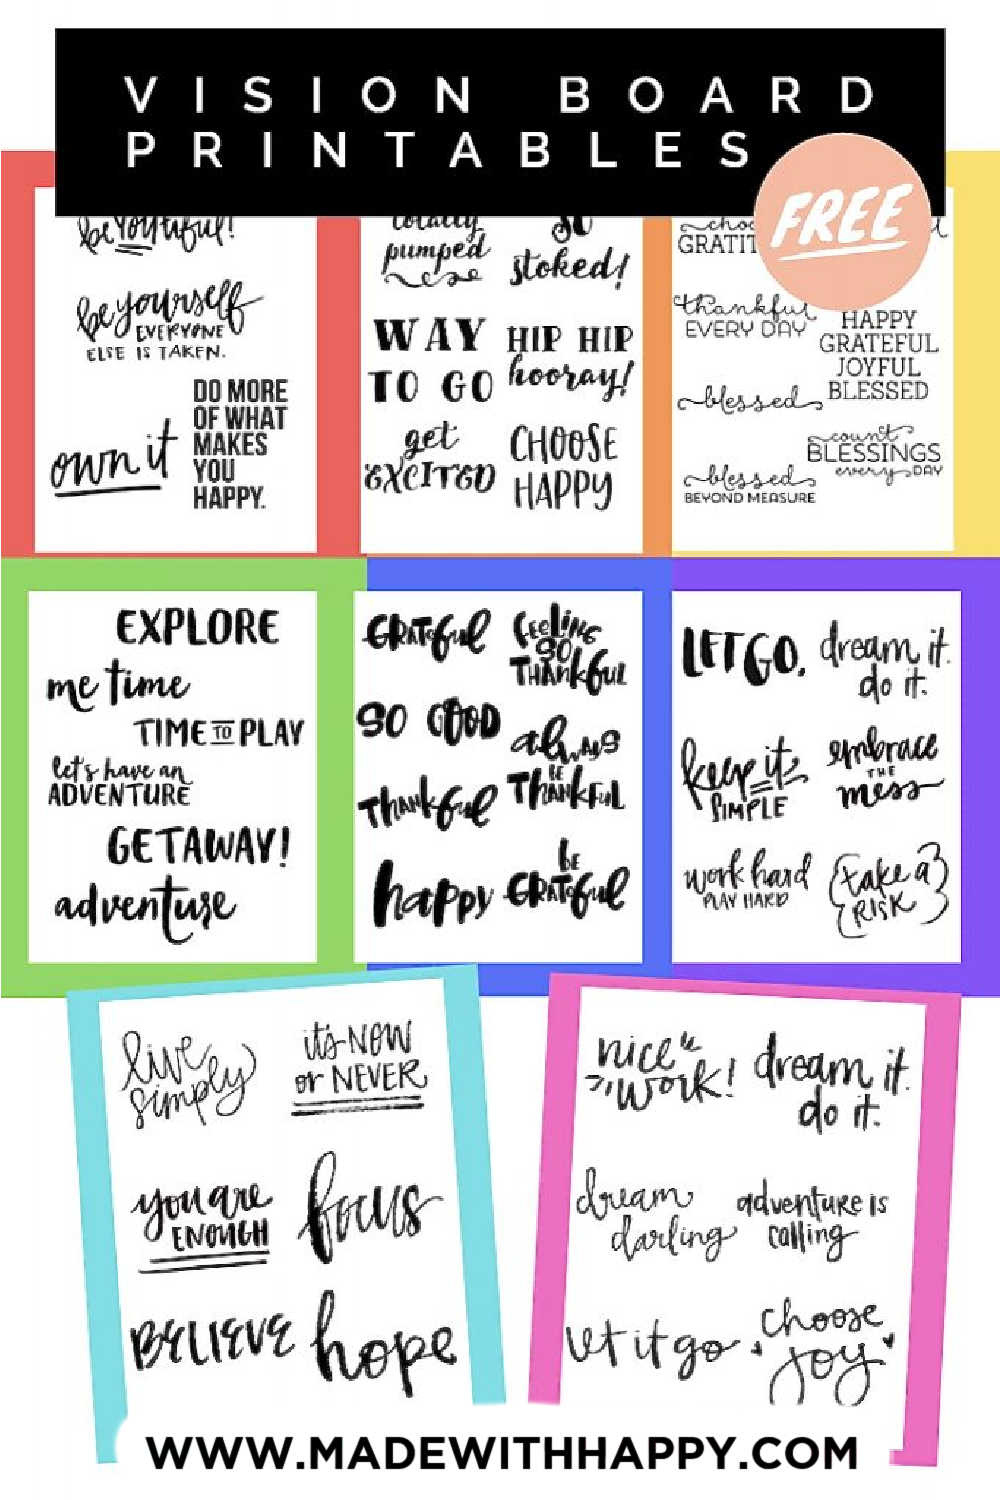 VISION BOARD
PRINTABLES
FREE
beYOUtiful!
be yourself
EVERYONE
ELSE IS TAKEN.
own it
DO MORE
OF WHAT
MAKES
YOU
HAPPY.
totally
pumped
SO
stoked!
WAY
TO GO
HIP HIP
hooray!
get
EXCITED
CHOOSE
HAPPY
thankful
EVERY DAY
HAPPY
GRATEFUL
JOYFUL
BLESSED
blessed
count
BLESSINGS
every DAY
blessed
BEYOND MEASURE
EXPLORE
me time
TIME TO PLAY
let's have an
ADVENTURE
GETAWAY!
adventure
GRATEFUL
FEELING
SO
THANKFUL
SO GOOD
always
BE
THANKFUL
THANKFUL
happy
BE
GRATEFUL
LET GO.
dream it.
do it.
keep it
SIMPLE
embrace
THE
mess
work hard
PLAY HARD
{take a}
{RISK}
live
simply
it's NOW
or NEVER
you are
ENOUGH
focus
BELIEVE
hope
nice
work!
dream it.
do it.
dream
darling
adventure is
calling
let it go
choose
joy
WWW.MADEWITHHAPPY.COM